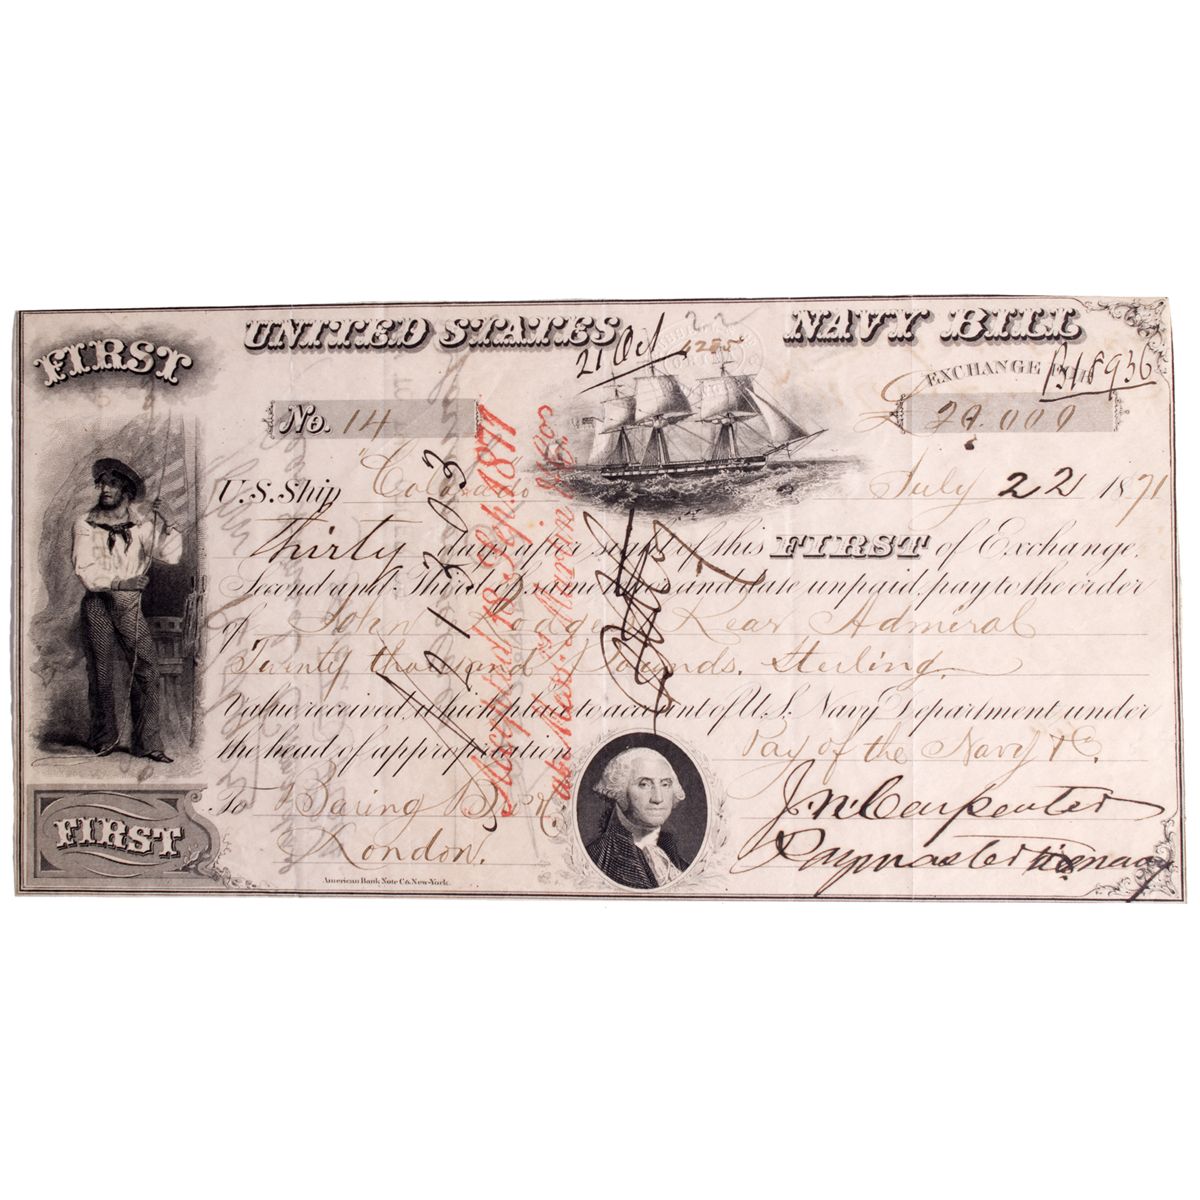 FIRST
UNITED STATES NAVY BILL
21 Oct
4285
EXCHANGE FOR
B18936
No. 14
£ 20.000
U.S. Ship Colorado July 22 1871
Thirty days after sight of this FIRST of Exchange,
Second and Third of same and date unpaid, pay to the order
of John Rodgers Rear Admiral
Twenty thousand Pounds Sterling
Value received, which place to account of U.S. Navy Department under
the head of appropriation Pay of the Navy &c.
To Baring Bros.
London.
J.N. Carpenter
Paymaster U.S. Navy
FIRST
American Bank Note Co. New-York.
Accepted 18 Sep. 1871
at Mess. Martin & Co